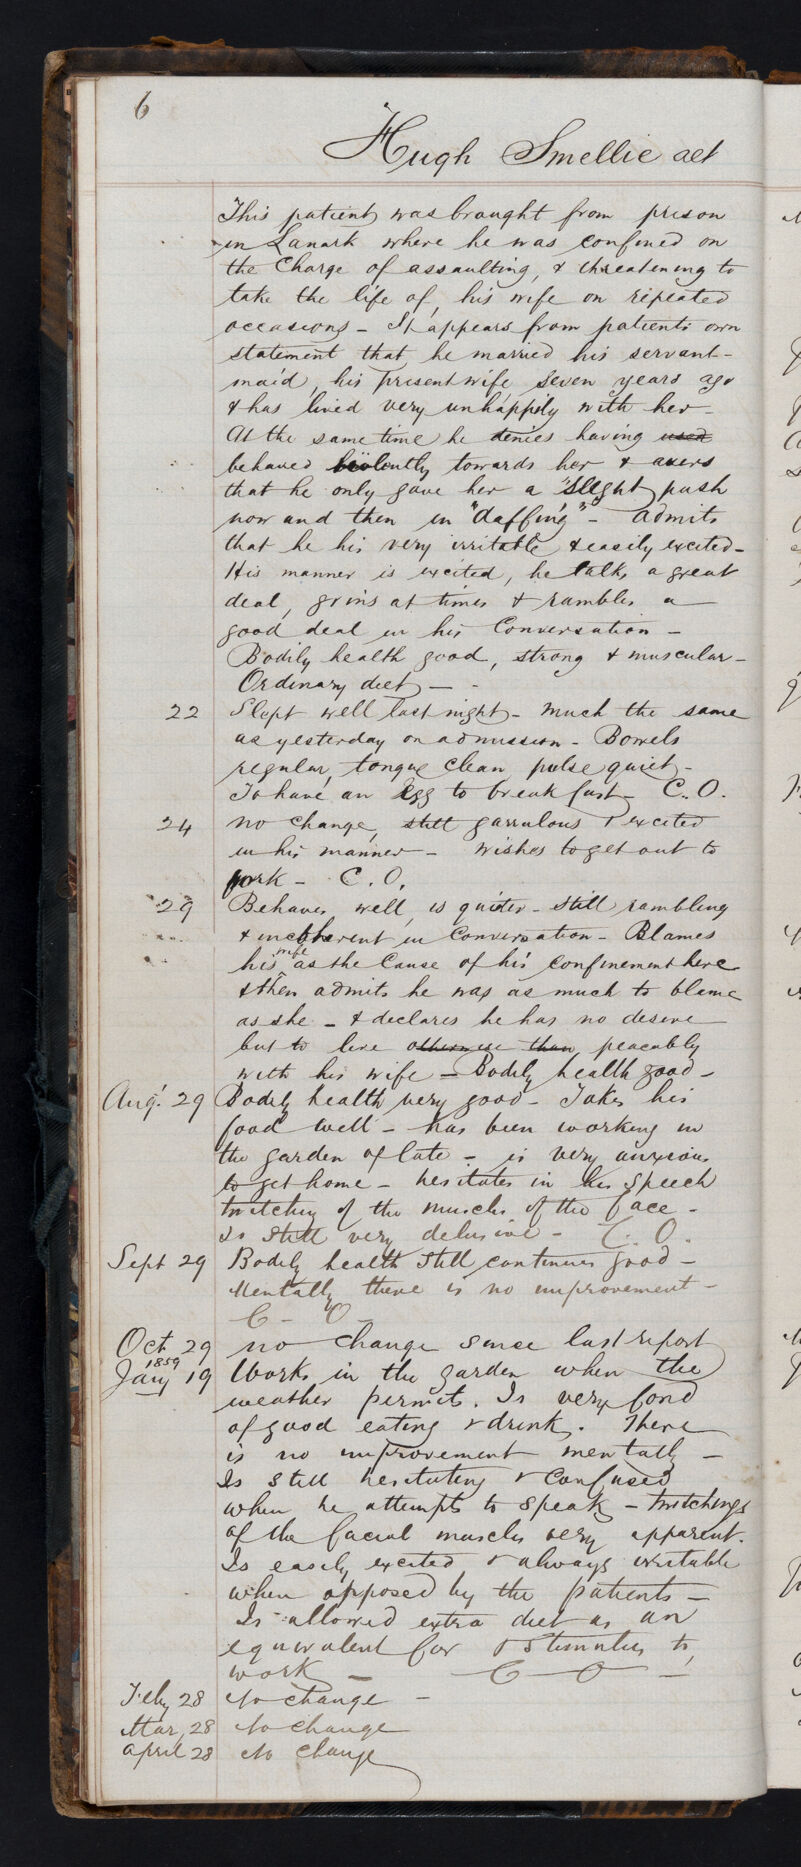 6
Hugh Smellie aet
This patient was brought from prison
in Lanark where he was confined on
the Charge of assaulting, & threatening to
take the life of, his wife on repeated
occasions - It appears from patients own
statement that he married his servant-
maid, his present wife, seven years ago
& has lived very unhappily with her -
At the same time he denies having used
behaved violently towards her & avers
that he only gave her a "slight push
now and then in "daffing" - Admits
that he his very irritable & easily excited -
His manner is excited, he talks a great
deal, grins at times & rambles a
good deal in his Conversation -
Bodily health good, strong & muscular -
Ordinary diet -
22 Slept well last night - Much the same
as yesterday on admission - Bowels
regular, tongue clean pulse quiet -
To have an Egg to breakfast - C. O.
24 No change, still garrulous & excited
in his manner - Wishes to get out to
work - C. O.
29 Behaves well, is quieter - Still rambling
& incoherent in Conversation - Blames
his wife as the Cause of his confinement here
& then admits he was as much to blame
as she - & declares he has no desire
but to live otherwise than peacably
with his wife - Bodily health good -
Augt. 29 Bodily health very good - Takes his
food well - has been working in
the garden of late - is very anxious
to get home - hesitates in his speech
twitching of the muscles of the face -
Is still very delusive - C. O.
Sept 29 Bodily health still continues good -
Mentally there is no improvement -
C - O -
Oct 29 No change since last report
1859
Jany 19 Works in the garden when the
weather permits. Is very fond
of good eating & drink. There
is no improvement mentally -
Is still hesitating & Confused
when he attempts to speak - twitchings
of the facial muscles very apparent.
Is easily excited & always irritable
when opposed by the patients -
Is allowed extra diet as an
equivalent for & stimulus to
work - C - O -
Feby 28 No change -
Mar, 28 No change
April 28 No change